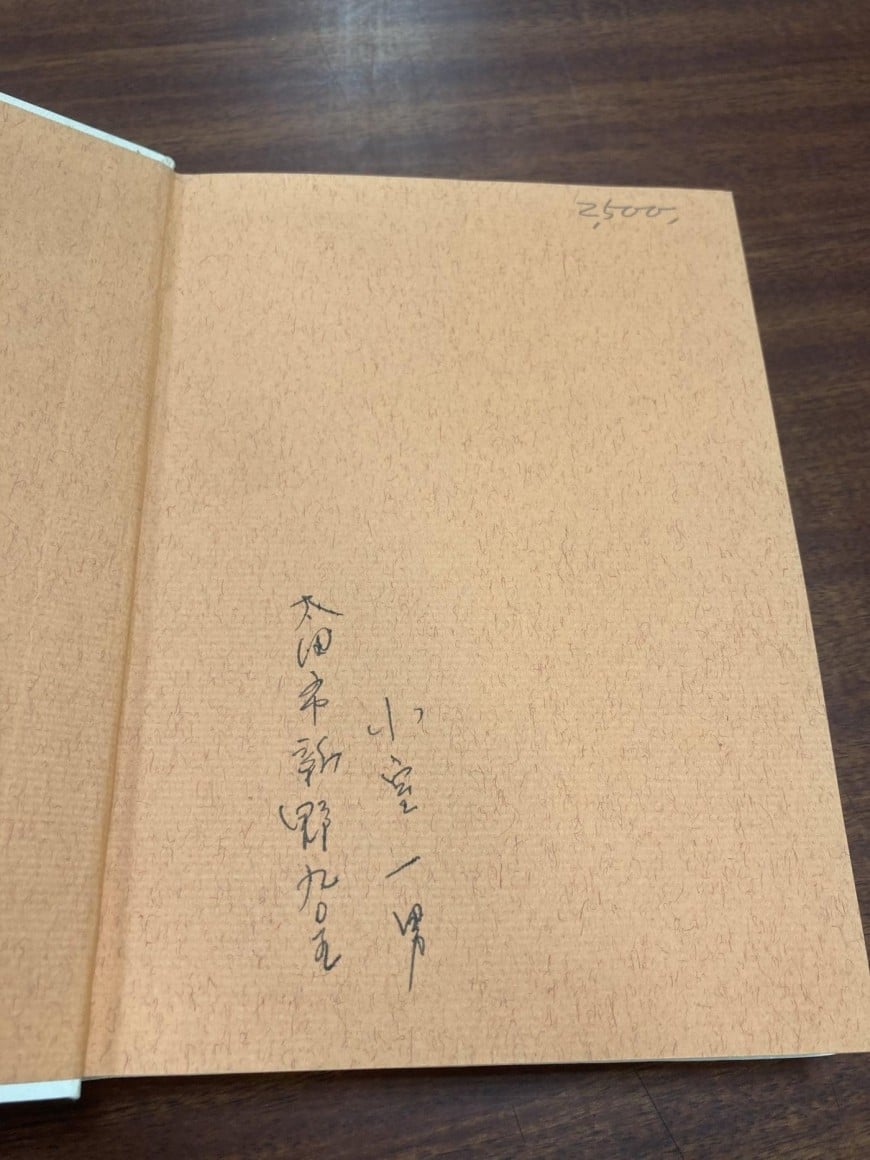 2,500,
小室一男
太田市新野九〇五